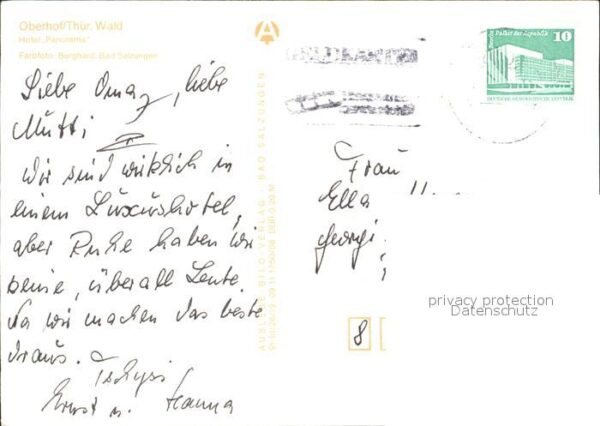 Oberhof/Thür. Wald
Hotel „Panorama"
Farbfoto: Burghard, Bad Salzungen
Liebe Oma, liebe
Mutti
Wir sind wirklich in
einem Luxushotel,
aber Ruhe haben wir
keine, überall Leute.
Na wir machen das beste
draus.
Tschüss
Ernst u. Hanna
AUSLESE-BILD-VERLAG · BAD SALZUNGEN
Palast der Republik
10
DEUTSCHE DEMOKRATISCHE REPUBLIK
Frau
Ella
8
privacy protection
Datenschutz